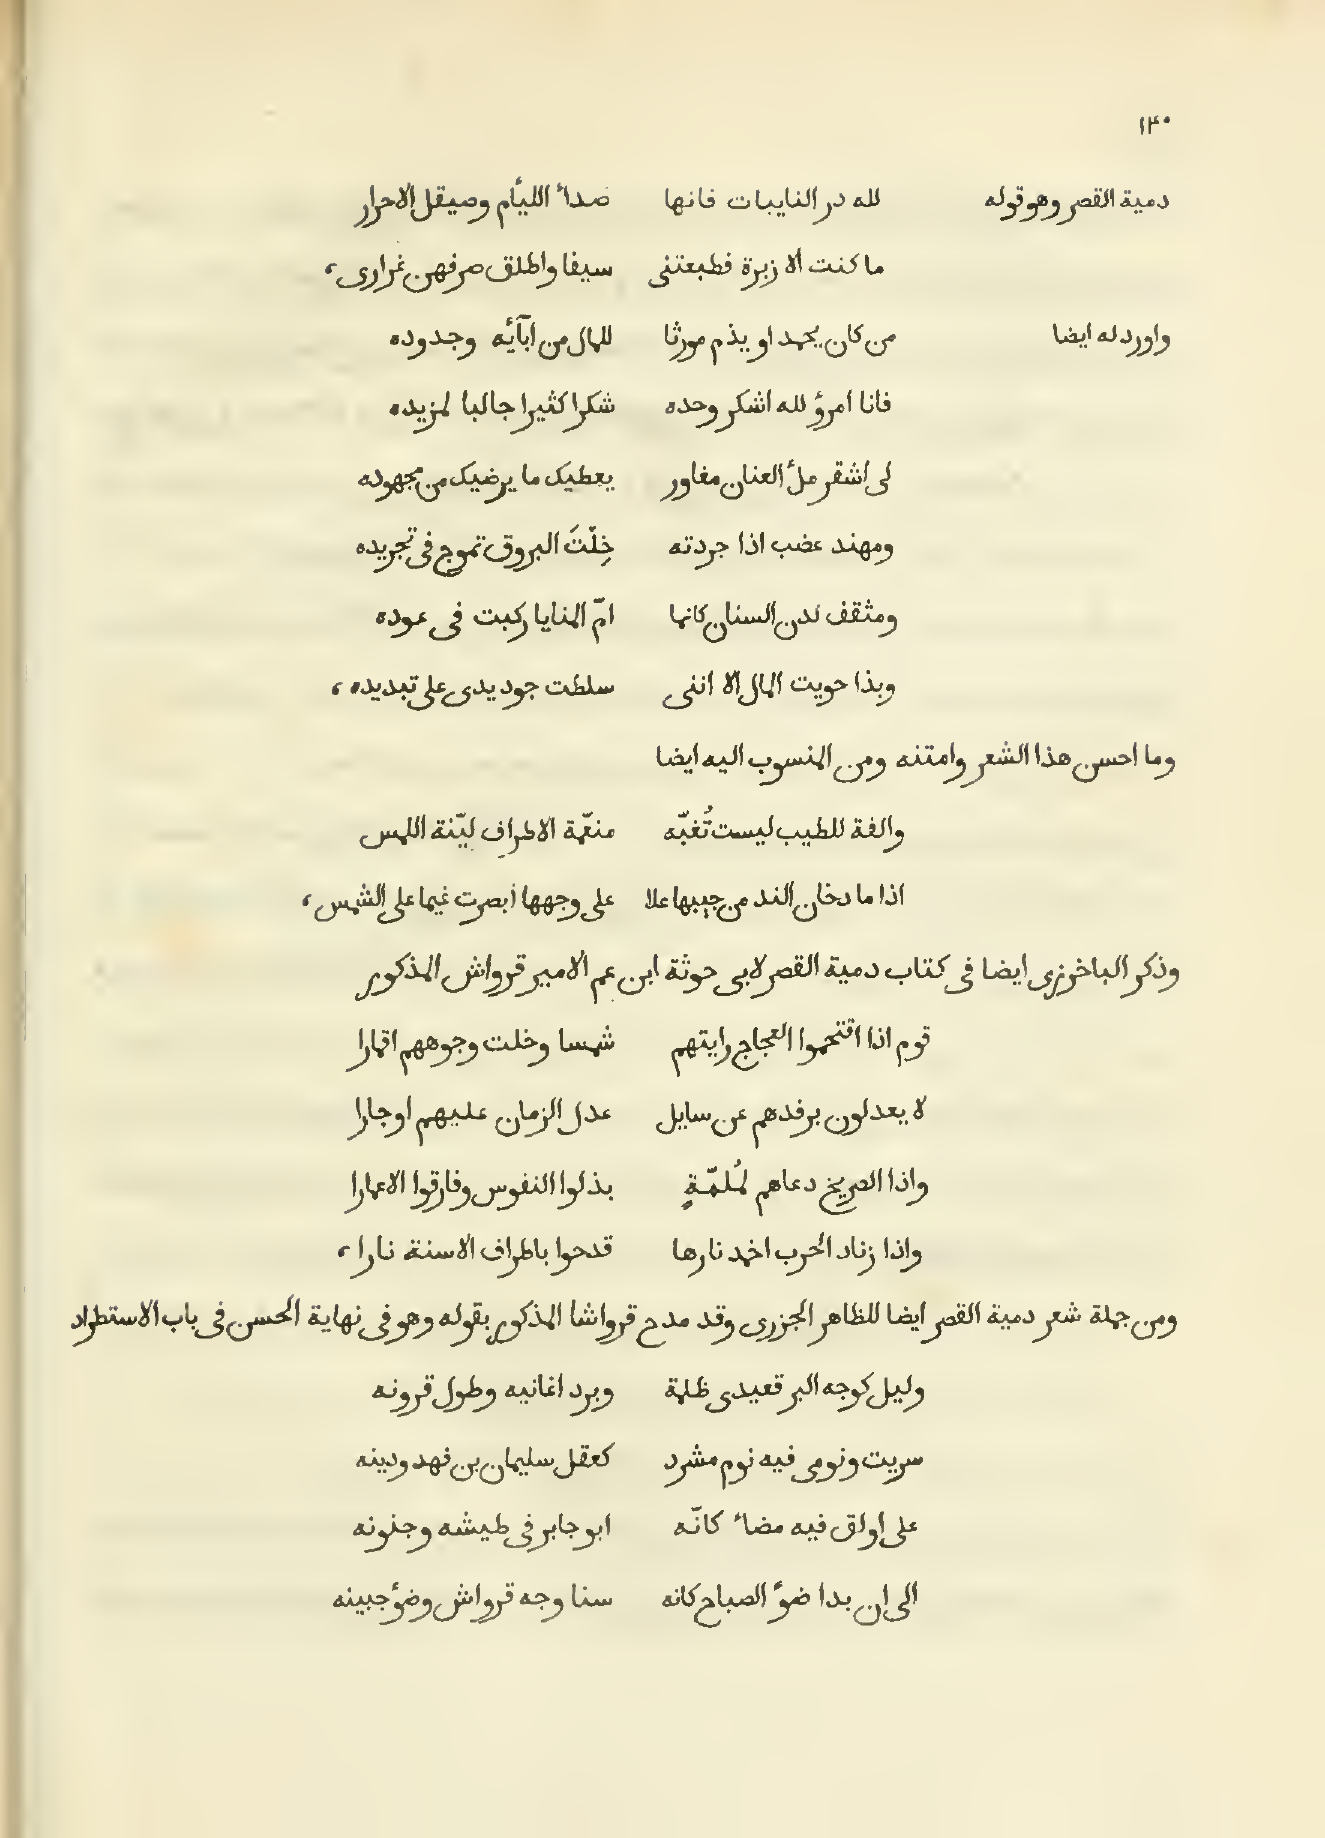 ١٣٠
دمية القصر وهو قوله لله در النايبات فانها صدأ الليأم وصيقل الاحرار
ما كنت الا زبرة فطبعتنى سيفا واطلق صرفهن غرارى،
واورد له ايضا من كان يحمد او يذم مورثا للمال من ابآئه وجدوده
فانا امرؤ لله اشكر وحده شكرا كثيرا جالبا لمزيده
لى اشقر ملأ العنان مغاور يعطيك ما يرضيك من مجهوده
ومهند عضب اذا جردته خِلْتَ البروق تموج فى تجريده
ومثقف لدن السنان كانما امّ المنايا ركبت فى عوده
وبذا حويت المال الا اننى سلطت جود يدى على تبديده،
وما احسن هذا الشعر وامتنه ومن المنسوب اليه ايضا
والفة للطيب ليست تُغبّه منعّمة الاطراف ليّنة اللمس
اذا ما دخان الند من جيبها علا على وجهها ابصرت غيما على الشمس،
وذكر الباخرزى ايضا فى كتاب دمية القصر لابى حوثة ابن عم الامير قرواش المذكور
قوم اذا اقتحموا العجاج رايتهم شمسا وخلت وجوههم اقمارا
لا يعدلون برفدهم عن سايل عدل الزمان عليهم او جارا
واذا الصريخ دعاهم لمُلمّةٍ بذلوا النفوس وفارقوا الاعمارا
واذا زناد الحرب اخمد نارها قدحوا باطراف الاسنة نارا،
ومن جملة شعر دمية القصر ايضا للظاهر الجزرى وقد مدح قرواشا المذكور بقوله وهو فى نهاية الحسن فى باب الاستطراد
وليل كوجه البرقعيدى ظلمة وبرد اغانيه وطول قرونه
سريت ونومى فيه نوم مشرد كعقل سليمان بن فهد ودينه
على اولق فيه مضأ كانّه ابو جابر فى طيشه وجنونه
الى ان بدا ضؤ الصباح كانه سنا وجه قرواش وضؤ جبينه